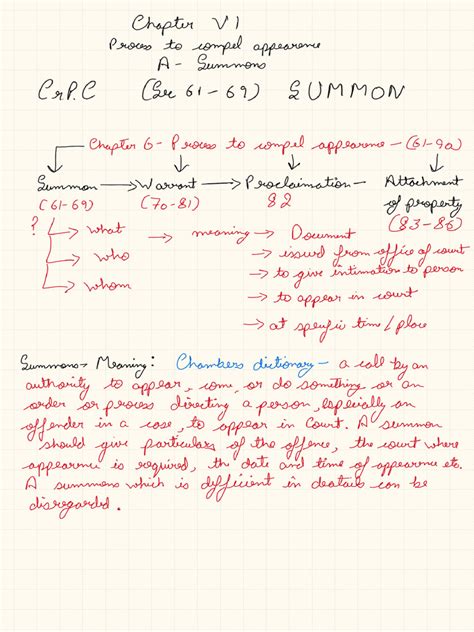 Chapter VI
Process to compel appearence
A - Summons
CrP.C (Sec 61 - 69) SUMMON
Chapter 6 - Process to compel appearence - (61-9a)
Summon → Warrant → Proclaimation - Attachment of property
(61-69) (70-81) 82 (83-86)
? → what → meaning → Document
→ who → issued from office of court
→ whom → to give intimation to person
→ to appear in court
→ at specific time / place
Summons → Meaning : Chambers dictionary - a call by an
authority to appear, come, or do something or an
order or process directing a person, especially an
offender in a case, to appear in Court. A summon
should give particulars of the offence, the court where
appearence is required, the date and time of appearence etc.
A summons which is difficient in deatails can be
disregarded.